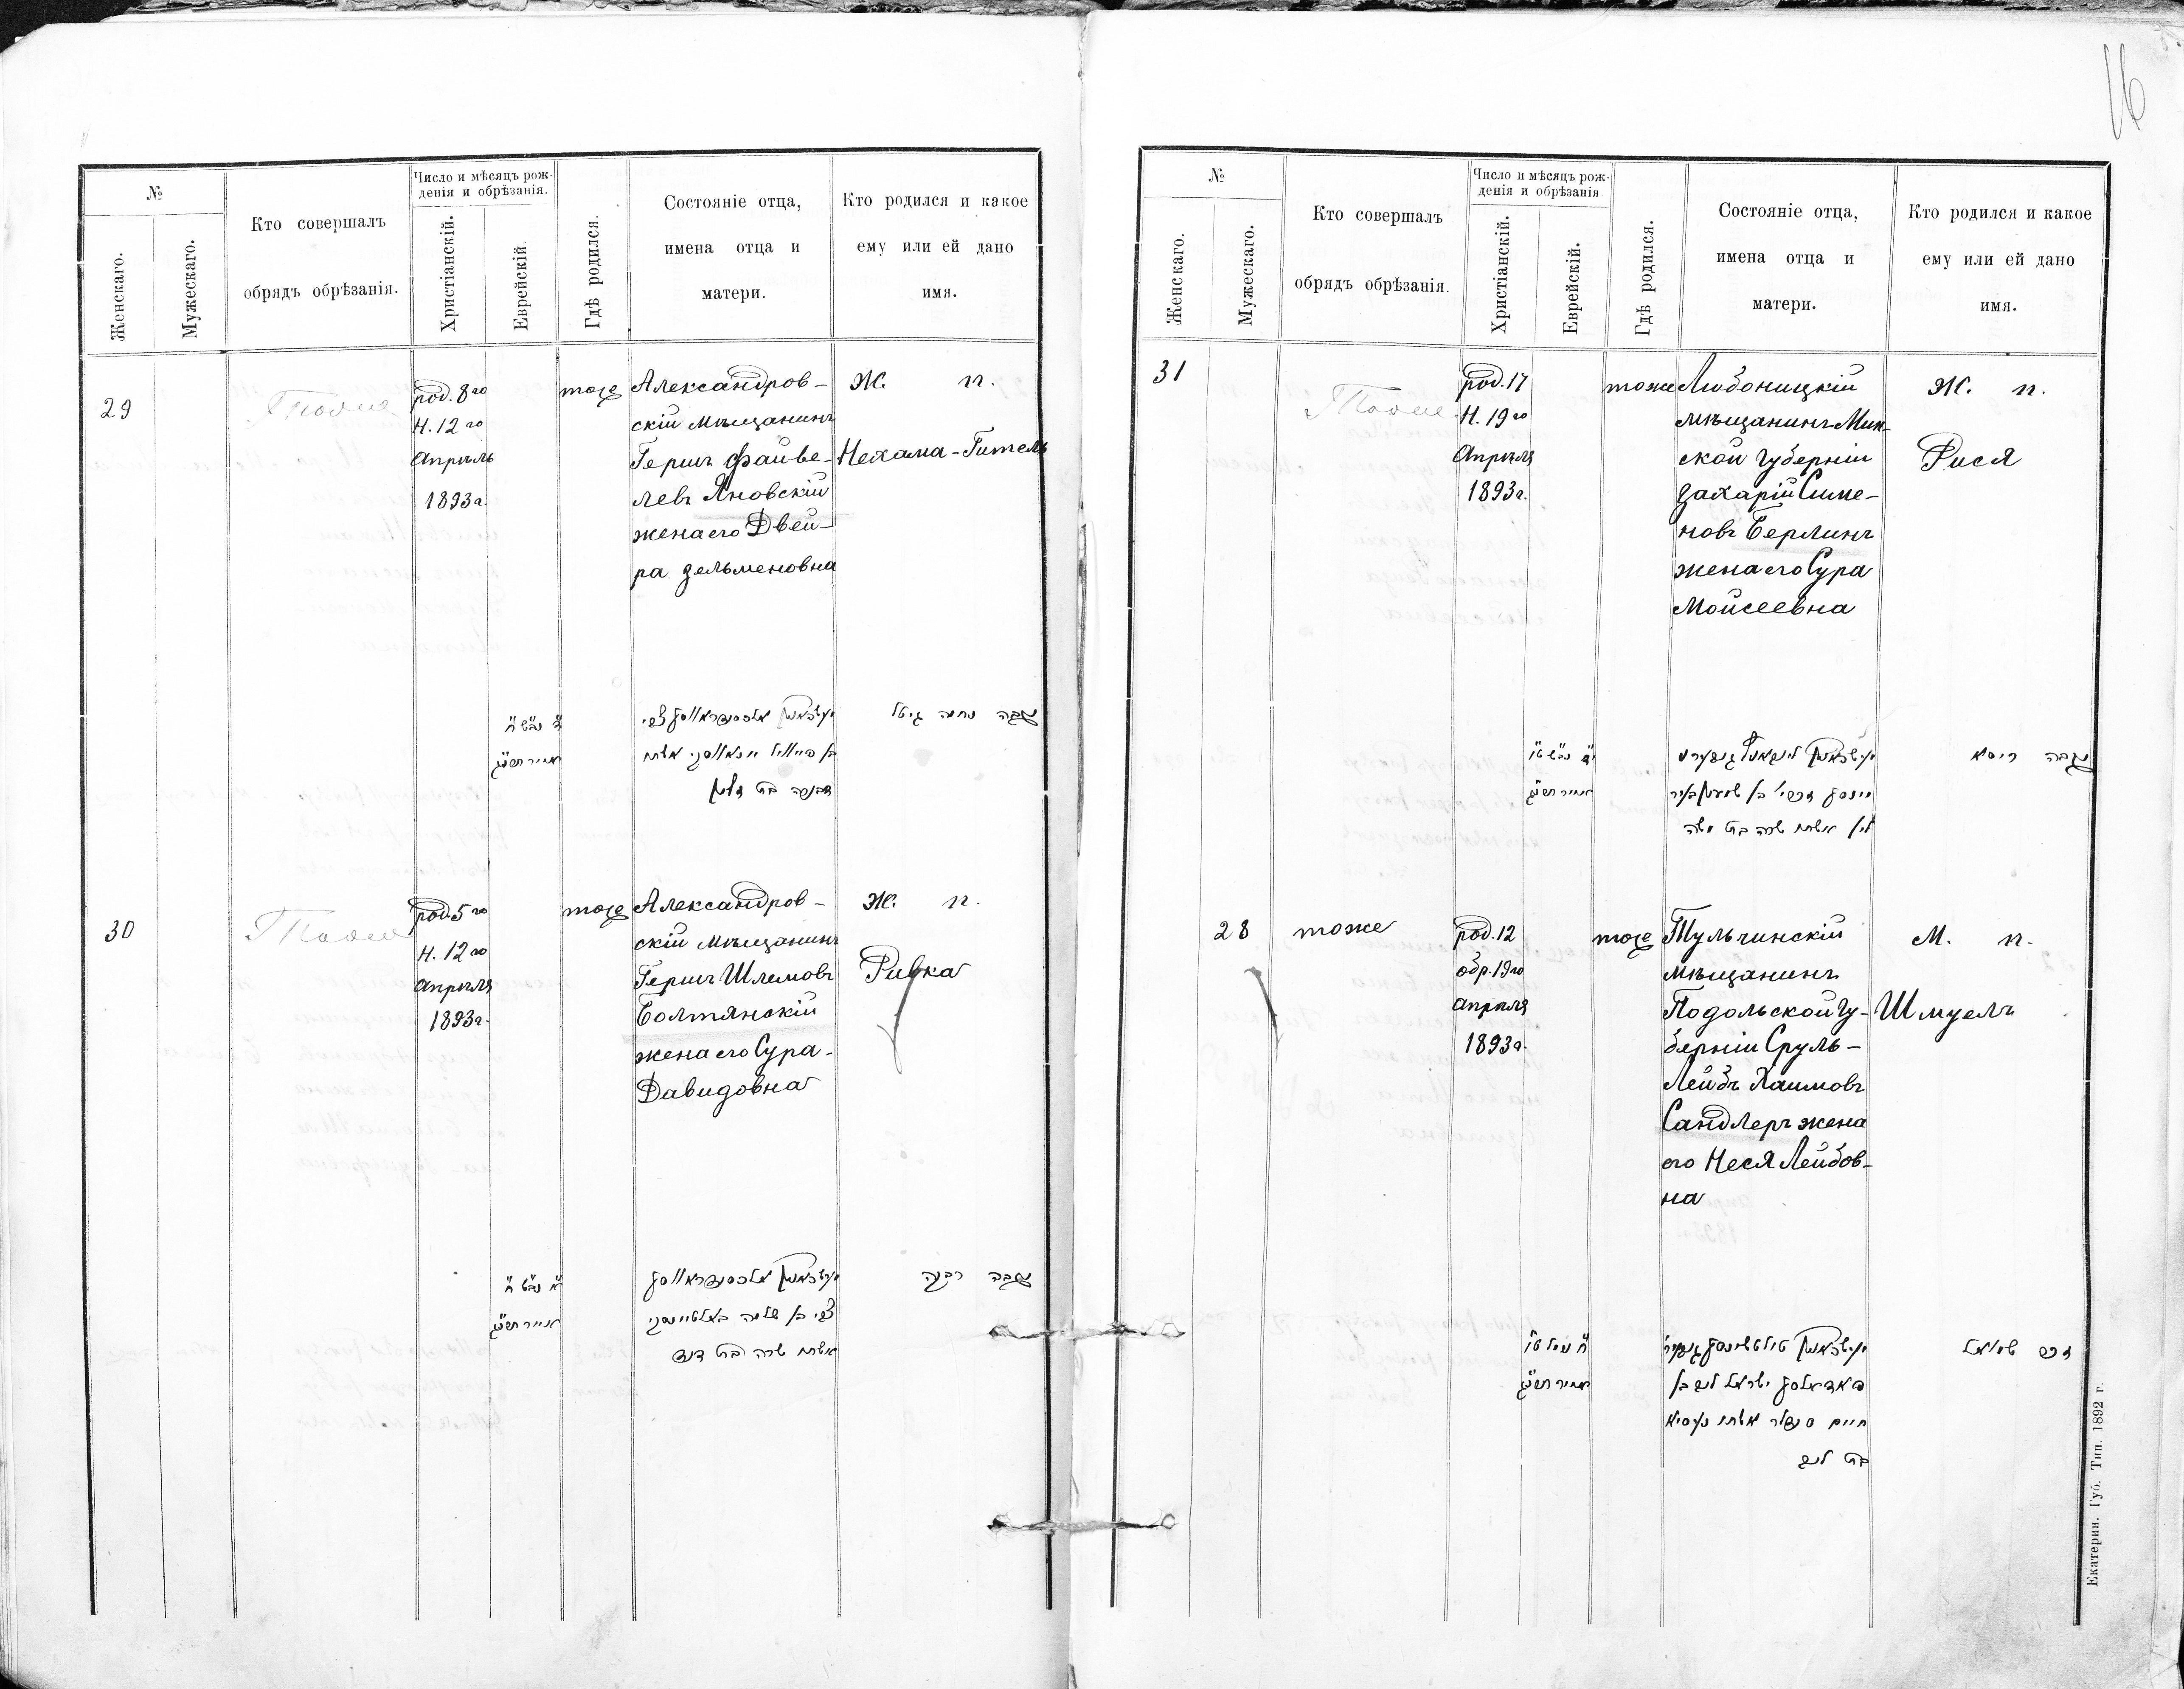 16
№
Женскаго.
Мужескаго.
Кто совершалъ
обрядъ обрѣзанія.
Число и мѣсяцъ рож-
денія и обрѣзанія.
Христіанскій.
Еврейскій
Гдѣ родился.
Состояніе отца,
имена отца и
матери.
Кто родился и какое
ему или ей дано
имя.
29
Тоже
род. 8го
Н. 12го
Апрѣль
1893г.
тоже
Александров-
скій мѣщанинъ
Гершъ Файве-
левъ Яновскій
жена его Двей-
ра Зельменовна
Ж. п.
Нехама-Гитель
נקבה נחמה גיטל
בת זלמן
30
Тоже
род. 5го
Н. 12го
Апрѣля
1893г.
тоже
Александров-
скій мѣщанинъ
Гершъ Шлемовъ
Болтянскій
жена его Сура-
Давидовна
Ж. п.
Ривка
נקבה רבקה
אשתו שרה בת דוד
№
Женскаго.
Мужескаго.
Кто совершалъ
обрядъ обрѣзанія.
Число и мѣсяцъ рож-
денія и обрѣзанія
Христіанскій.
Еврейскій.
Гдѣ родился.
Состояніе отца,
имена отца и
матери.
Кто родился и какое
ему или ей дано
имя.
31
Тоже
род. 17
Н. 19го
Апрѣля
1893г.
тоже
Любоницкій
мѣщанинъ Мин-
ской Губерніи
Захарій Симе-
новъ Берлинъ
жена его Сура
Моисеевна
Ж. п.
Рися
נקבה ריסא
לין אשתו שרה בת משה
28
тоже
род. 12
обр. 19го
Апрѣля
1893г.
тоже
Тульчинскій
мѣщанинъ
Подольской Гу-
берніи Сруль-
Лейбъ Хаимовъ
Сандлеръ жена
его Неся Лейбов-
на
М. п.
Шмуелъ
זכר שמואל
ישראל ליב בן
חיים סנדלר אשתו נעסיא
בת ליב
Екатерин. Губ. Тип. 1892 г.